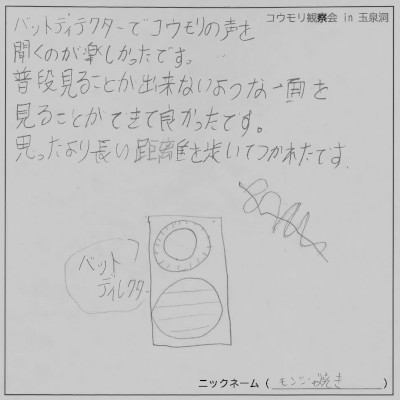 コウモリ観察会 in 玉泉洞
バットディテクターでコウモリの声を
聞くのが楽しかったです。
普段見ることが出来ないような一面を
見ることができて良かったです。
思ったより長い距離を歩いてつかれたです.
バット
ディレクター
ニックネーム（モンジャ焼き）